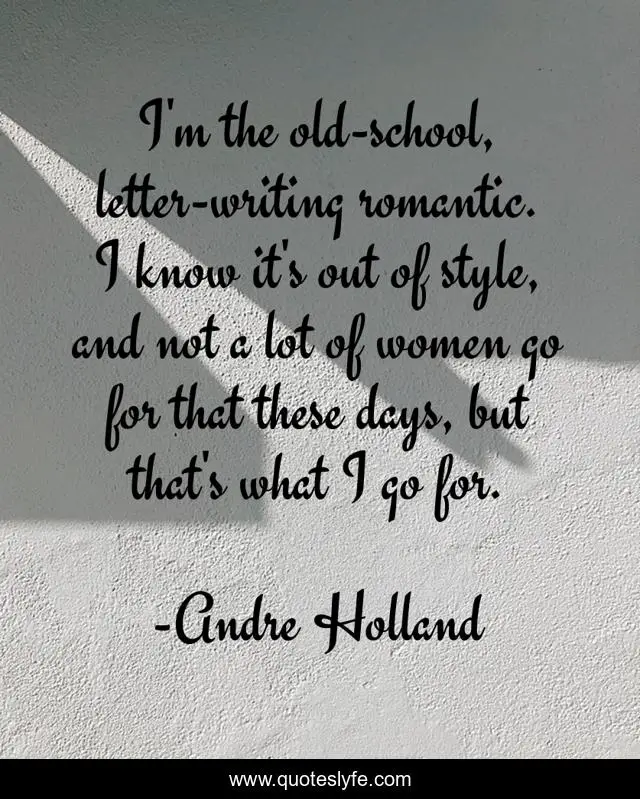 I'm the old-school,
letter-writing romantic.
I know it's out of style,
and not a lot of women go
for that these days, but
that's what I go for.
-Andre Holland
www.quoteslyfe.com